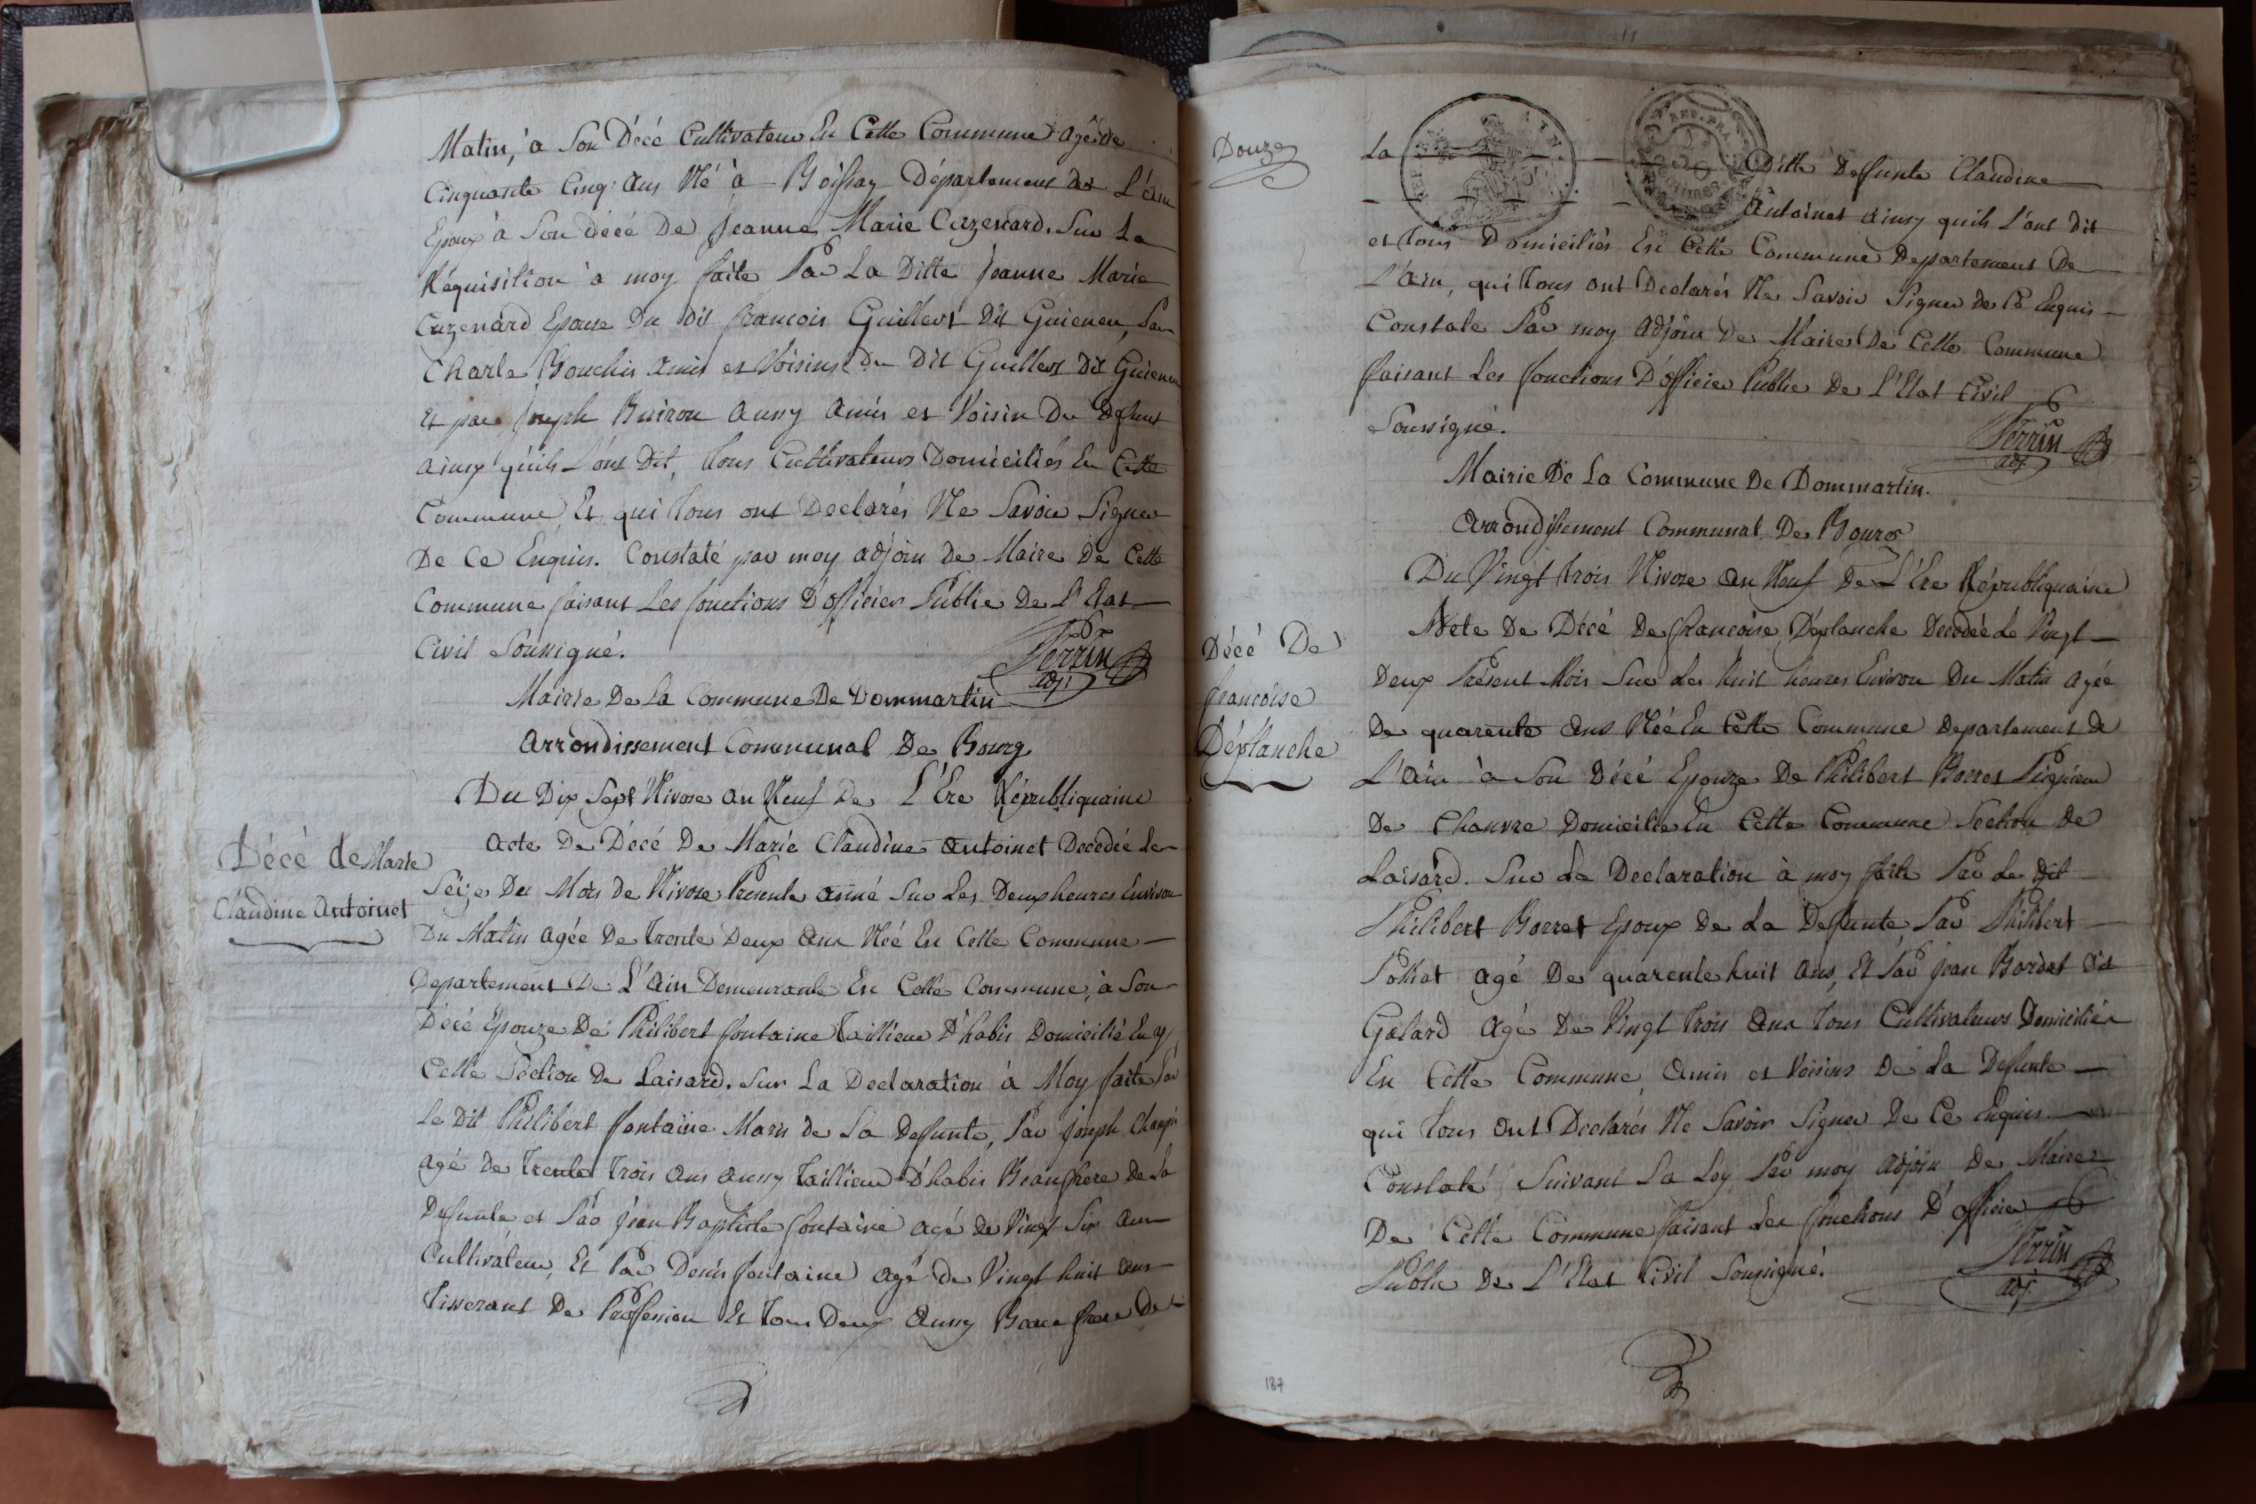 Matin, à Son Décé Cultivateur En Cette Commune agé de
Cinquante Cinq ans Né à Boissey Département de L'ain
Epoux à Son décé De Jeanne Marie Cuzenard. Sur La
Réquisition à moy faite Par La Ditte Jeanne Marie
Cuzenard Epouse Du dit françois Guillert Dit Guienen, Par
Charle Bouchis amis et Voisins Du Dit Guillert Dit Guienen
Et par Joseph Buiron aussy amis et Voisin Du defunt
ainsy quils L'ont Dit, tous Cultivateurs Domiciliés En Cette
Commune Et qui tous ont Declarés Ne Savoir Signer
De Ce Enquis. Constaté par moy adjoin de Maire De Cette
Commune faisant Les fonctions D'officier Public De L'Etat
Civil Soussigné.
Perrin
adj.
Mairie De La Commune De Dommartin
arrondissement Communal De Bourg
Du Dix Sept Nivose an Neuf De L'Ere Républiquaine
Décé de Marie
Claudine Antoinet
acte De Décé De Marie Claudine antoinet Decedée Le
Seize Du Mois de Nivose Presente année Sur Les Deux heures Environ
Du Matin agée De trente Deux ans Née En Cette Commune
Departement De L'Ain Demeurante En Cette Commune, à Son
Décé Epouze De Philibert fontaine tailleur D'habis Domicilié En
Cette Section De Laisard. Sur La Declaration à Moy faite Par
Le Dit Philibert fontaine Maris de La Defunte, Par Joseph
agé de trente trois ans aussy tailleur D'habis Beaufrere De La
Defunte et Par Jean Baptiste fontaine agé de Vingt Six ans
Cultivateur, Et Par Denis fontaine agé de Vingt huit ans
tisserant De Proffession Et tous Deux aussy Beau frere De
Douze
La Ditte Deffunte Claudine
Antoinet ainsy quils L'ont Dit
et tous Domiciliés En Cette Commune Departement De
L'ain, qui tous ont Declarés Ne Savoir Signer de Ce Enquis
Constate Par moy adjoin De Maire De Cette Commune
faisant Les fonctions D'officier Public De L'Etat Civil
Soussigné.
Perrin
adj.
Mairie De La Commune De Dommartin.
arrondissement Communal De Bourg
Du Vingt trois Nivose an Neuf De L'Ere Républiquaine
Décé De
françoise
Déplanche
Acte De Décé De françoise Déplanche Decedée Le Vingt
Deux Present Mois Sur Les huit heures Environ Du Matin agée
De quarente ans Née En Cette Commune Departement De
L'Ain à Son Décé Epouze De Philibert Borret Pignieur
De Chanvre Domicilié En Cette Commune Section De
Laisard. Sur La Declaration à moy faite Par Le dit
Philibert Borret Epoux De La Defunte Par Philibert
agé De quarente huit ans, Et Par Jean Bordet dit
Galard agé De Vingt trois ans tous Cultivateurs Domiciliés
En Cette Commune amis et Voisins De La Defunte
qui tous ont Declarés Ne Savoir Signer De Ce Enquis
Constaté Suivant La Loy Par moy adjoin De Maire
De Cette Commune faisant Les fonctions D'officier
Public De L'Etat Civil Soussigné.
Perrin
adj.
187